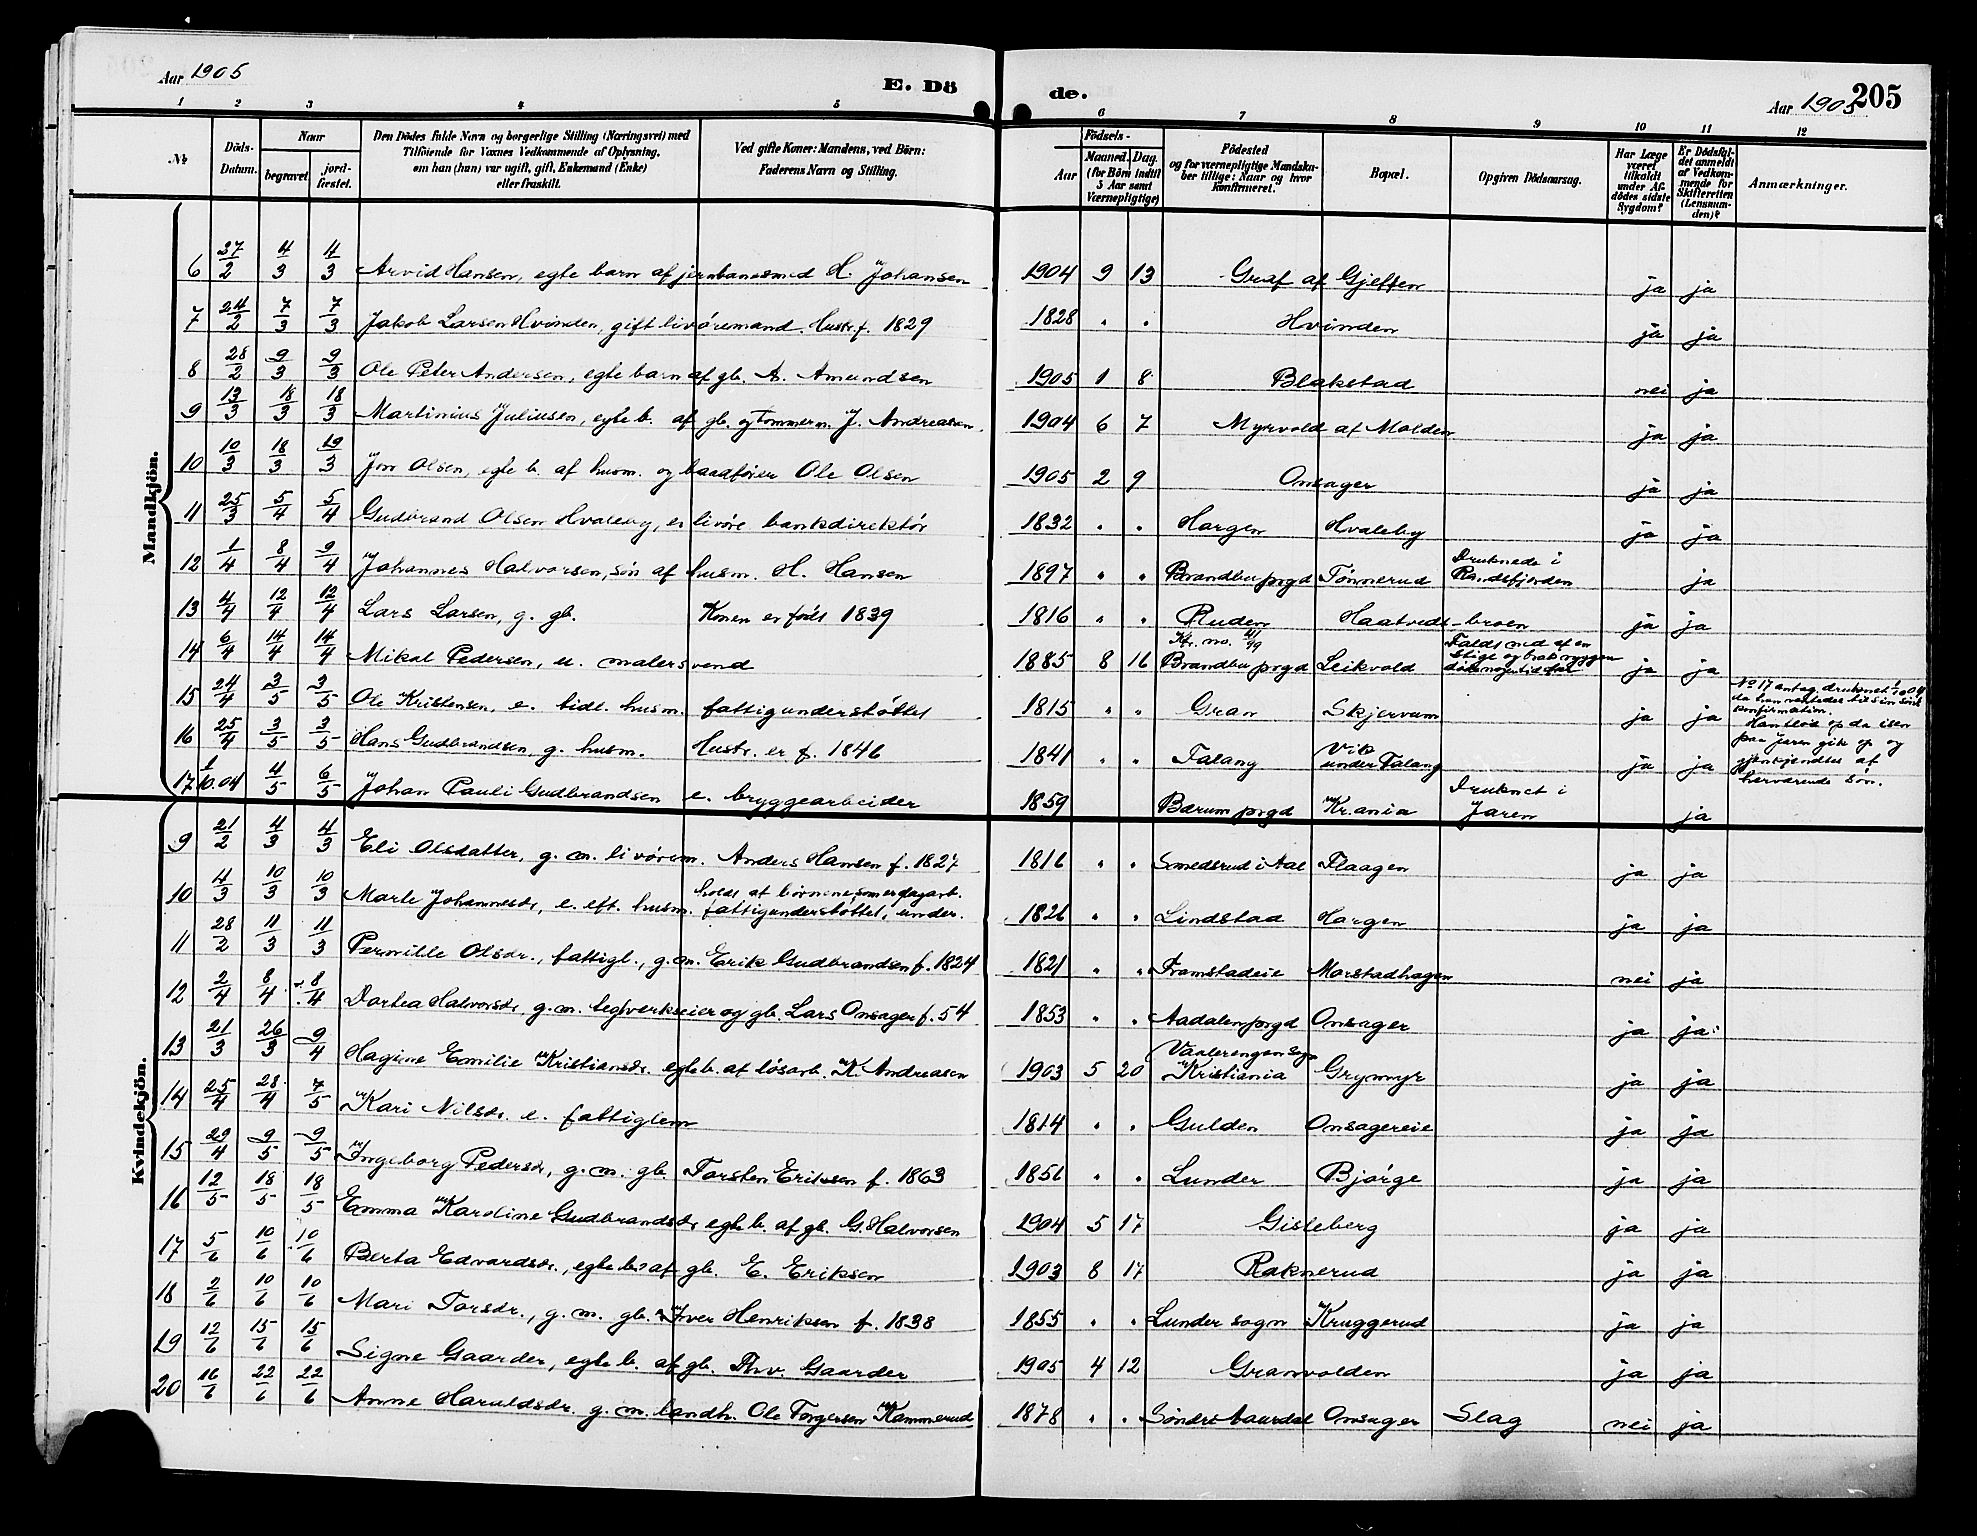 Aar 1905 E. Dö de. Aar 1905 205
1 2 3 4 5 6 7 8 9 10 11 12
No. Döds-Datum. Naar begravet jordfæstet. Den Dödes fulde Navn og borgerlige Stilling (Næringsvei) med Tilföiende for Voxnes Vedkommende af Oplysning, om han (hun) var ugift, gift, Enkemand (Enke) eller fraskilt. Ved gifte Koner: Mandens, ved Börn: Faderens Navn og Stilling. Födsels- Aar Maaned. Dag. (for Börn indtil 5 Aar samt Værnepligtige) Födested og for værnepligtige Mandskaber tillige: Naar og hvor Konfirmeret. Bopæl. Opgiven Dödsaarsag. Har Læge været tilkaldt under Afdödes sidste Sygdom? Er Dödsfaldet anmeldt af Vedkommende for Skifteretten (Lensmanden)? Anmærkninger.
Mandkjön.
6 27/2 4/3 4/3 Arvid Hansen, egte barn af jernbanesmed H. Johansen 1904 9 13 Graf af Gjeffsen ja ja
7 24/2 7/3 7/3 Jakob Larsen Hvinden, gift livøremand. Hustr. f. 1829 1828 " " Hvinden ja ja
8 28/2 9/3 9/3 Ole Peter Andersen, egte barn af gb. A. Amundsen 1905 1 8 Blakstad nei ja
9 13/3 18/3 18/3 Martinius Juliusen, egte b. af gb. og tømmerm. J. Andreasen 1904 6 7 Myrvold af Molden ja ja
10 10/3 18/3 19/3 Jon Olsen, egte b. af husm. og baadfører Ole Olsen 1905 2 9 Onsager ja ja
11 25/3 5/4 5/4 Gudbrand Olsen Hvaleby, e. livøre bankdirektør 1832 " " Horgen Hvaleby ja ja
12 1/4 8/4 9/4 Johannes Halvorsen, søn af husm. H. Hansen 1897 " " Brandbu prgd Tønnerud Druknede i Randsfjorden ja
13 4/4 12/4 12/4 Lars Larsen, g. gb. Konen er født 1839 1816 " " Ruden Haatvedt-broen ja ja
14 6/4 14/4 14/4 Mikal Pedersen, u. malersvend 1885 8 16 Kf. no. Brandbu prgd Leikvold Faldt ned af en Stige og brak ryggen ja ja
15 24/4 3/5 3/5 Ole Kristensen, e. tidl. husm. fattigunderstøttet 1815 " " Gran Skjervum ja ja
16 25/4 3/5 3/5 Hans Gudbrandsen, g. husm. Hustr. er f. 1846 1841 " " Falang Vik under Falang ja ja
17 1/10.04 4/5 6/5 Johan Pauli Gudbrandsen e. bryggearbeider 1859 Bærum prgd Kr.ania Druknet i Jaren ja No 17 antag. druknet 1/10 04 da han ventedes til sin søns konfirmation. Han fløt op da isen paa Jaren gik op og gjenkjendtes af hærværende søn.
Kvindekjön.
9 21/2 4/3 4/3 Eli Olsdatter, g. m. livørem. Anders Hansen f. 1827 1816 " " Smedsrud i Aal Flaagen ja ja
10 4/3 10/3 10/3 Marte Johannesdr., e. eft. husm. fattigunderstøttet, under. holdt af børnene som er dagarb. 1826 " " Lindstad Horgen ja ja
11 28/2 11/3 11/3 Pernille Olsdr., fattigl., g. m. Erik Gudbrandsen f. 1824 1821 " " Framstadeie Morstadhagen nei ja
12 2/4 8/4 8/4 Dortea Halvorsdr., g. m. teglverkseier og gb. Lars Onsager f. 54 1853 " " Aadalen prgd Onsager ja ja
13 21/3 26/3 9/4 Hagine Emilie Kristiansdr. egte b. af løsarb. K. Andreasen 1903 5 20 Vaalerengen Sogn Kristiania Grymyr ja ja
14 25/4 28/4 7/5 Kari Nilsdr. e. fattiglem 1814 " " Gulden Onsagereie ja ja
15 29/4 9/5 9/5 Ingeborg Pedersdr., g. m. gb. Torsten Eriksen f. 1863 1851 " " Lunder Bjørge ja ja
16 12/5 18/5 18/5 Emma Karoline Gudbrandsdr. egte b. af gb. G. Halvorsen 1904 5 17 Gisleberg ja ja
17 5/6 10/6 10/6 Berta Edvardsdr., egte b. af gb. E. Eriksen 1903 8 17 Raknerud ja ja
18 2/6 10/6 10/6 Mari Torsdr., g. m. gb. Iver Henriksen f. 1838 1855 " " Lunder sogn Kruggerud ja ja
19 12/6 15/6 15/6 Signe Gaarder, egte b. af gb. Thv. Gaarder 1905 4 12 Granvolden ja ja
20 16/6 22/6 22/6 Anne Haraldsdr. g. m. landh. Ole Torgersen Kammerud 1878 " " Søndre Aurdal Onsager Slag nei ja